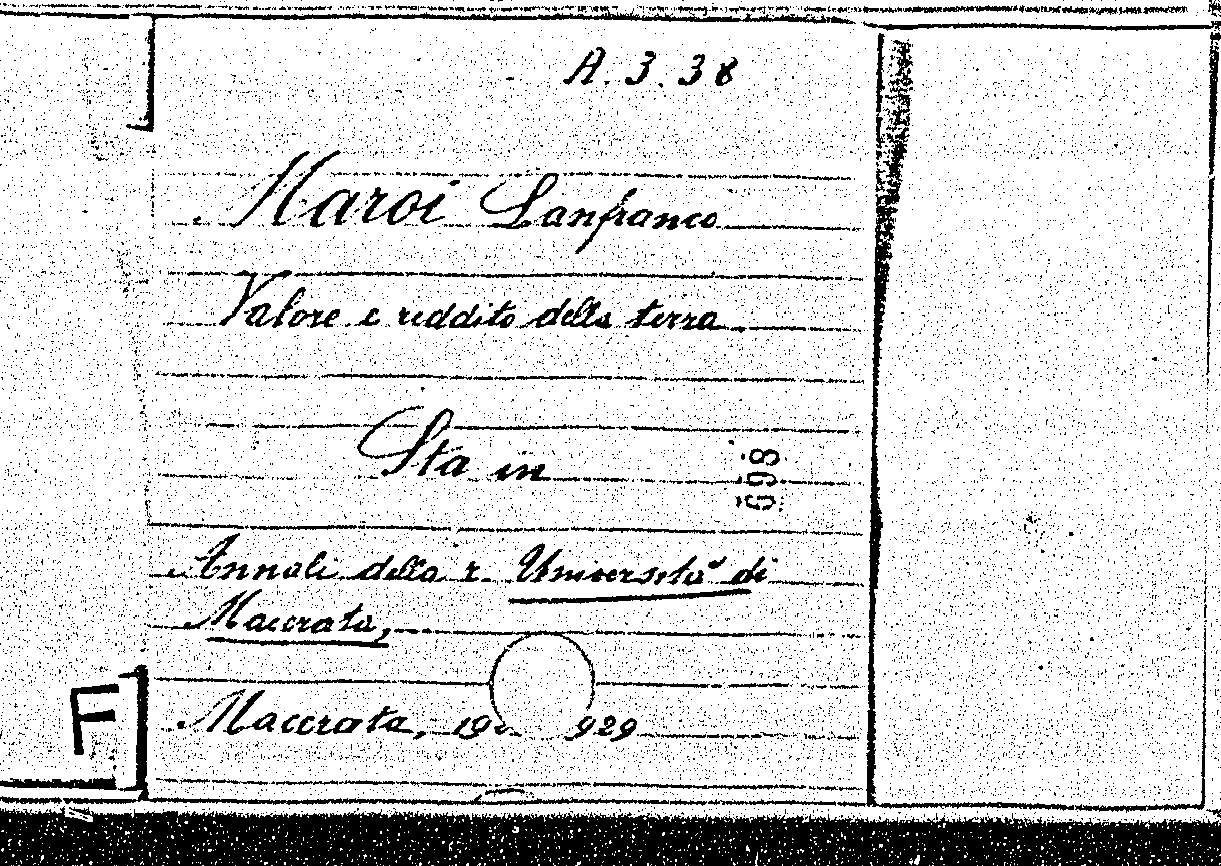 A. 3. 38
Maroi Lanfranco
Valore e reddito della terra
Sta in
698
Annali della r. Università di
Macerata,
F
Macerata, 19 929